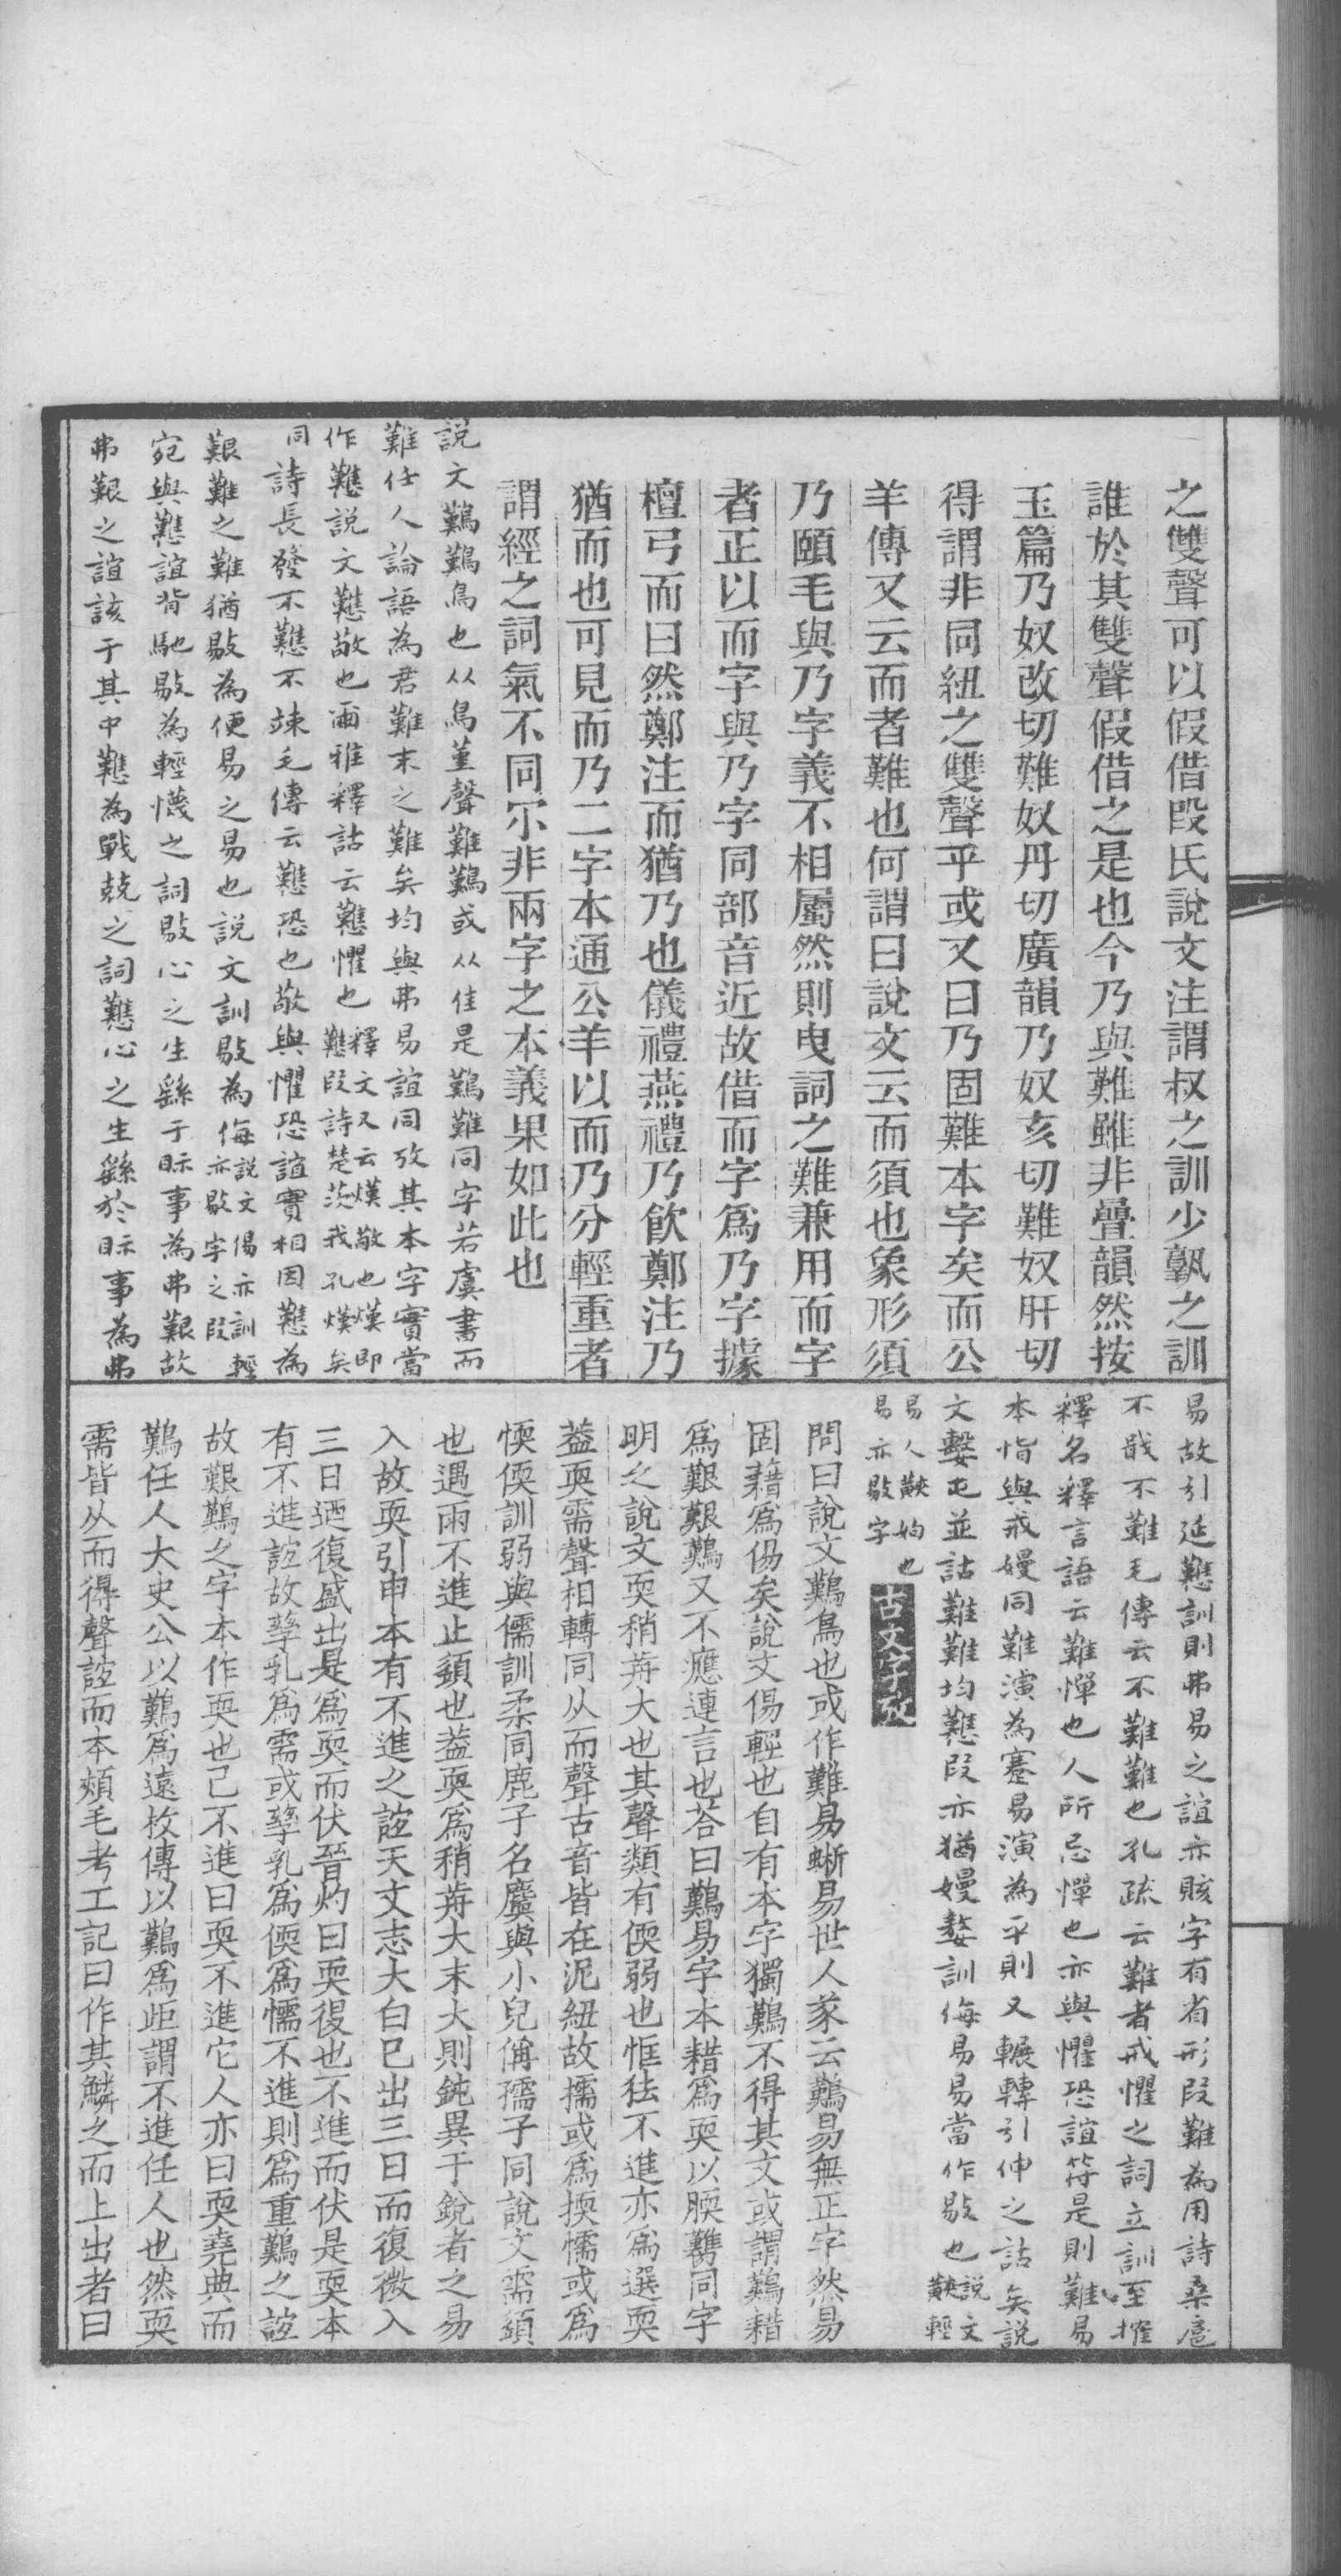 之雙聲可以假借段氏說文注謂叔之訓少孰之訓
誰於其雙聲假借之是也今乃與難雖非疊韻然按
玉篇乃奴改切難奴丹切廣韻乃奴亥切難奴肝切
得謂非同紐之雙聲乎或又曰乃固難本字矣而公
羊傳又云而者難也何謂曰說文云而須也象形須
乃頤毛與乃字義不相屬然則曳詞之難兼用而字
者正以而字與乃字同部音近故借而字爲乃字據
檀弓而曰然鄭注而猶乃也儀禮燕禮乃飮鄭注乃
猶而也可見而乃二字本通公羊以而乃分輕重者
謂經之詞氣不同尒非兩字之本義果如此也
說文鷬鷬鳥也从鳥堇聲難鷬或从隹是鷬難同字若虞書而
難任人論語為君難末之難矣均與弗易誼同攷其本字實當
作戁說文戁敬也爾雅釋詁云戁懼也釋文又云熯敬也熯即戁段詩楚茨我孔熯矣
同詩長發不戁不竦毛傳云戁恐也敬與懼恐誼實相因戁為
艱難之難猶敡為便易之易也說文訓敡為侮說文傷亦訓輕亦敡字之段
宛與戁誼背馳敡為輕懱之詞敡心之生繇于眎事為弗艱故
弗艱之誼該于其中戁為戰兢之詞戁心之生繇於眎事為弗
易故引延戁訓則弗易之誼亦賅字有省形段難為用詩桑扈
不戢不難毛傳云不難難也孔疏云難者戒懼之詞立訓至搉
釋名釋言語云難憚也人所忌憚也亦與懼恐誼符是則難易
本恉與戒嫚同難演為蹇易演為平則又輾轉引伸之詁矣說
文嫛屯並詁難難均戁段亦猶嫚嫯訓侮易易當作敡也說文輕
易人姁也易亦敡字
古文字攷
問曰說文鷬鳥也或作難易蜥易世人彖云鷬易無正字然易
固藉爲傷矣說文傷輕也自有本字獨鷬不得其文或謂鷬藉
爲艱艱鷬又不應連言也荅曰鷬易字本藉爲耎以腝同字
明之說文耎稍歬大也其聲類有偄弱也恇怯不進亦爲選耎
葢耎需聲相轉同从而聲古音皆在泥紐故擩或爲㨎懦或爲
愞偄訓弱與儒訓柔同鹿子名麛與小兒偁孺子同說文需䇓
也遇雨不進止䇓也葢耎爲稍歬大末大則鈍異于銳者之易
入故耎引申本有不進之誼天文志大白巳出三日而復微入
三日迺復盛出是爲耎而伏晉灼曰耎復也不進而伏是耎本
有不進誼故孳乳爲需或孳乳爲偄爲懦不進則爲重鷬之誼
故艱鷬之字本作耎也己不進曰耎不進它人亦曰耎堯典而
鷬任人大史公以鷬爲遠枚傳以鷬爲歫謂不進任人也然耎
需皆从而得聲誼而本頰毛考工記曰作其鱗之而上出者曰